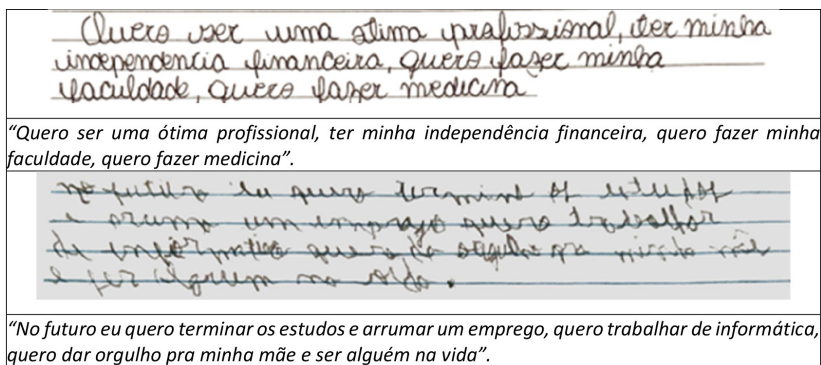 Quero ser uma otima profissional, ter minha
independencia financeira, quero faser minha
faculdade, quero fazer medicina
“Quero ser uma ótima profissional, ter minha independência financeira, quero fazer minha
faculdade, quero fazer medicina”.
no futuro eu quero termina os estudos
e aruma um emprego quero trabalhar
de informatica quero da orgulho pra minha mãe
e ser alguem na vida.
“No futuro eu quero terminar os estudos e arrumar um emprego, quero trabalhar de informática,
quero dar orgulho pra minha mãe e ser alguém na vida”.